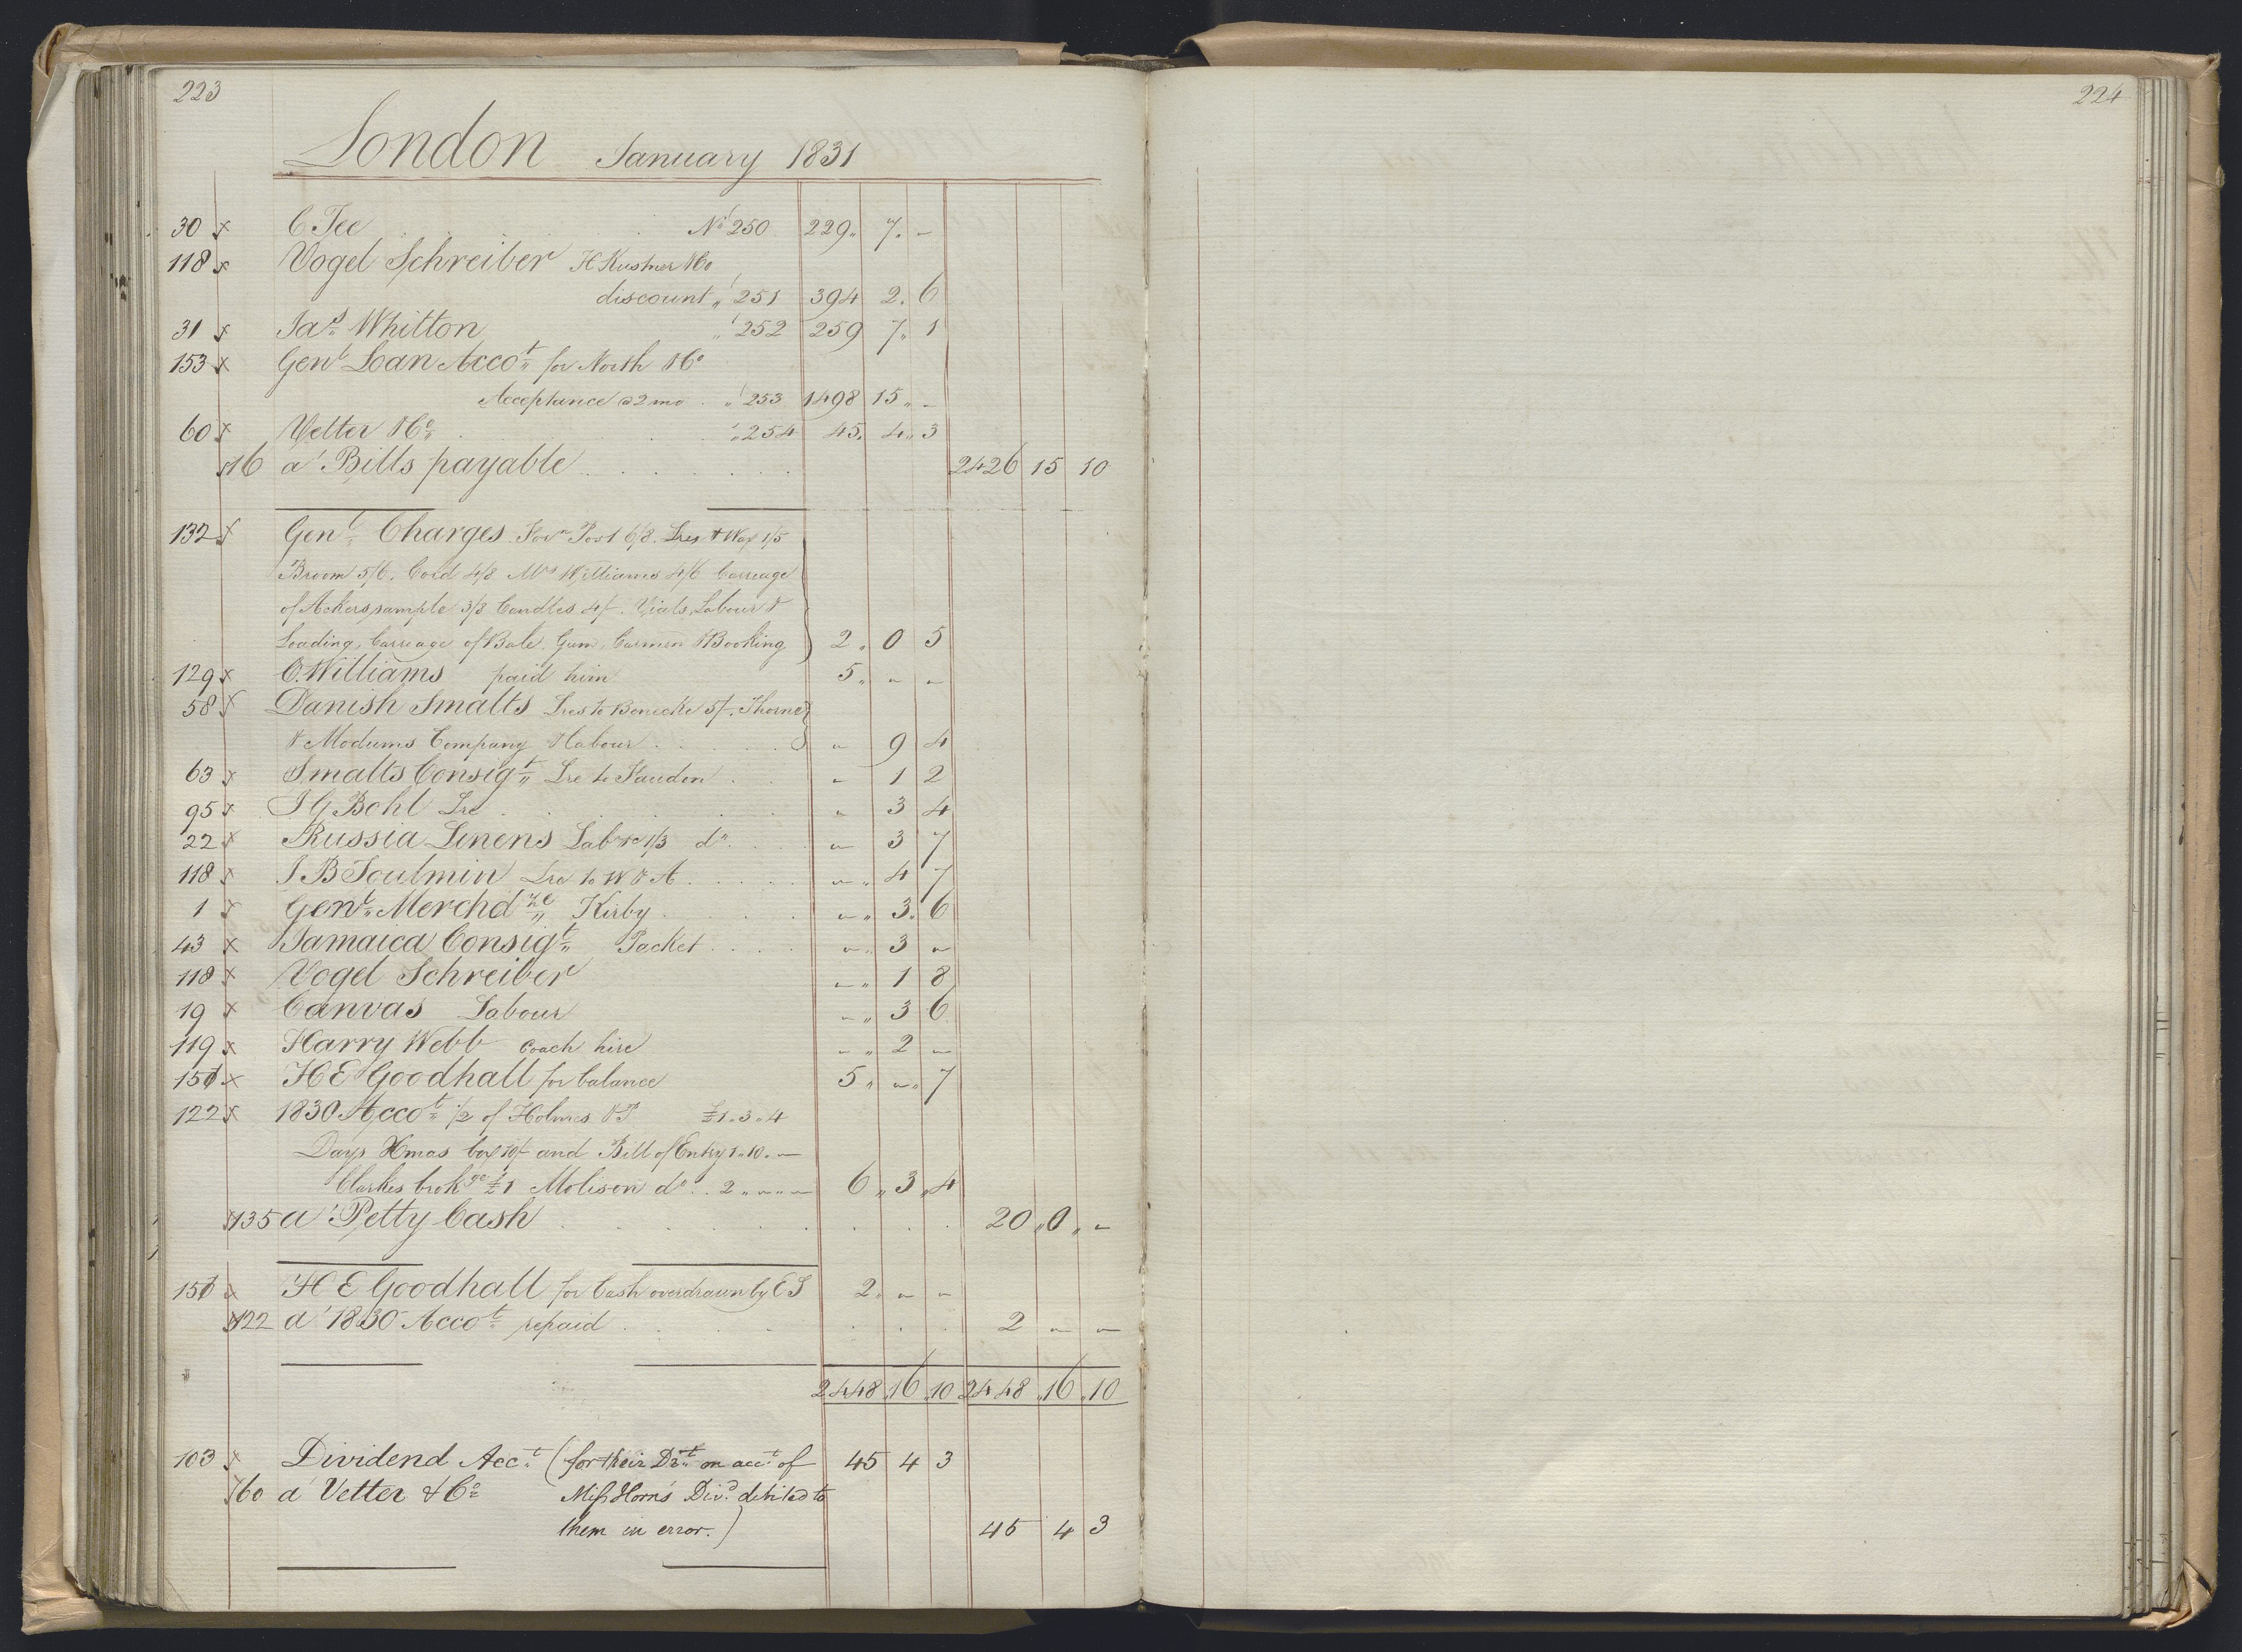 223
London January 1831
30 x C. Tee No 250 229 " 7 " -
118 x Vogel Schreiber H Kustner & Co
discount " 251 394 2 . 6
31 x Jas Whitton " 252 259 7 " 1
153 x Genl Loan Accot for North & Co
Acceptance @ 2 mo . " 253 1498 15 " -
60 x Vetter & Co " 254 45 . 4 " 3
x 16 a' Bills payable 2426 15 10
132 x Genl Charges Forn Post 6/8 Lres & Wax 1/5
Broom 5/6. Cord 4/8 Mrs Williams 4/6 Carriage
of Ackers sample 3/3 Candles 4/- . Vials, Labour &
Loading, Carriage of Bale Gum, Carmen & Booking 2 " 0 5
129 x C. Williams paid him 5 " - -
58 x Danish Smalts Lres to Benecke 5/-. Thorne
& Modums Company & Labour - 9 4
63 x Smalts Consigt Lre to - 1 2
95 x J G Bohl Lre - 3 4
22 x Russia Linens Labre 1/3 do - 3 7
118 x J B Toulmin Lre to W & A - " 4 7
1 x Genl Merchdze Kirby - " 3 . 6
43 x Jamaica Consigt Packet - " 3 -
118 x Vogel Schreiber - " 1 8
19 x Canvas Labour - " 3 6
119 x Harry Webb Coach hire - " 2 -
151 x H E Goodhall for balance 5 " - " 7
122 x 1830 Accot 1/2 of Holmes & P £1 . 3 . 4
Days Xmas box 10/- and Bill of Entry 1 " 10 . -
Clarkes brokge £1 Molison do . . 2 " - " - 6 " 3 " 4
x 135 a' Petty Cash 20 " 0 " -
151 x H E Goodhall for Cash overdrawn by C S 2 " - -
x 122 a' 1830 Accot repaid 2 - -
2448 " 16 " 10 2448 " 16 " 10
103 x Dividend Acct (for their Dft on acct of 45 4 3
x 60 a' Vetter & Co Miss Horn's Divd debited to
them in error.) 45 4 3
224